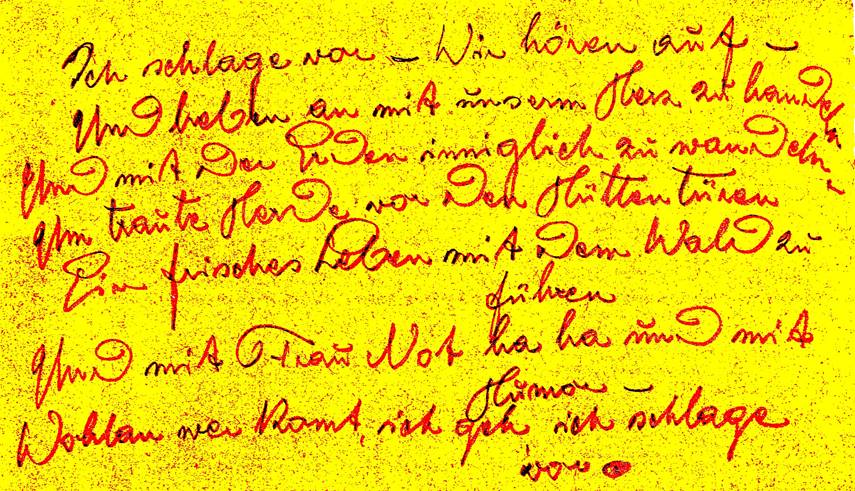 Ich schlage vor – Wir hören auf –
Und heben an mit unserm Herz zu handeln
Und mit der Erden inniglich zu wandeln –
Um traute Herde vor den Hüttentüren
Ein frisches Leben mit dem Wald zu
führen
Und mit Frau Not ha ha und mit
Humor –
Wohlan wer komt, ich geh ich schlage
vor